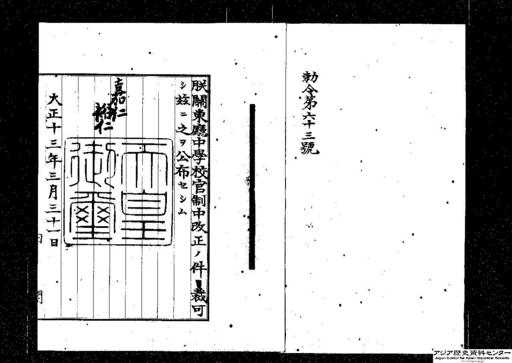 勅令第六十三號
朕關東廳中學校官制中改正ノ件裁可
シ茲ニ之ヲ公布セシム
嘉仁
裕仁
天皇御璽
大正十三年三月三十一日
アジア歴史資料センター
Japan Center for Asian Historical Records